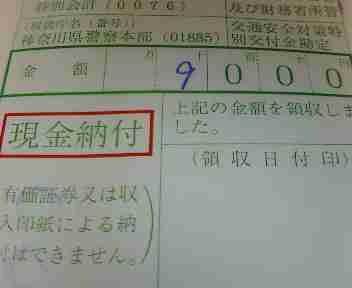 特別会計(0076)
及び財務省所管
(取扱庁名(番号))
神奈川県警察本部(01885)
交通安全対策特
別交付金勘定
金額 万 千 百 十 円
9000
現金納付
上記の金額を領収しま
した。
(領収日付印)
有価証券又は収
入印紙による納
付はできません。